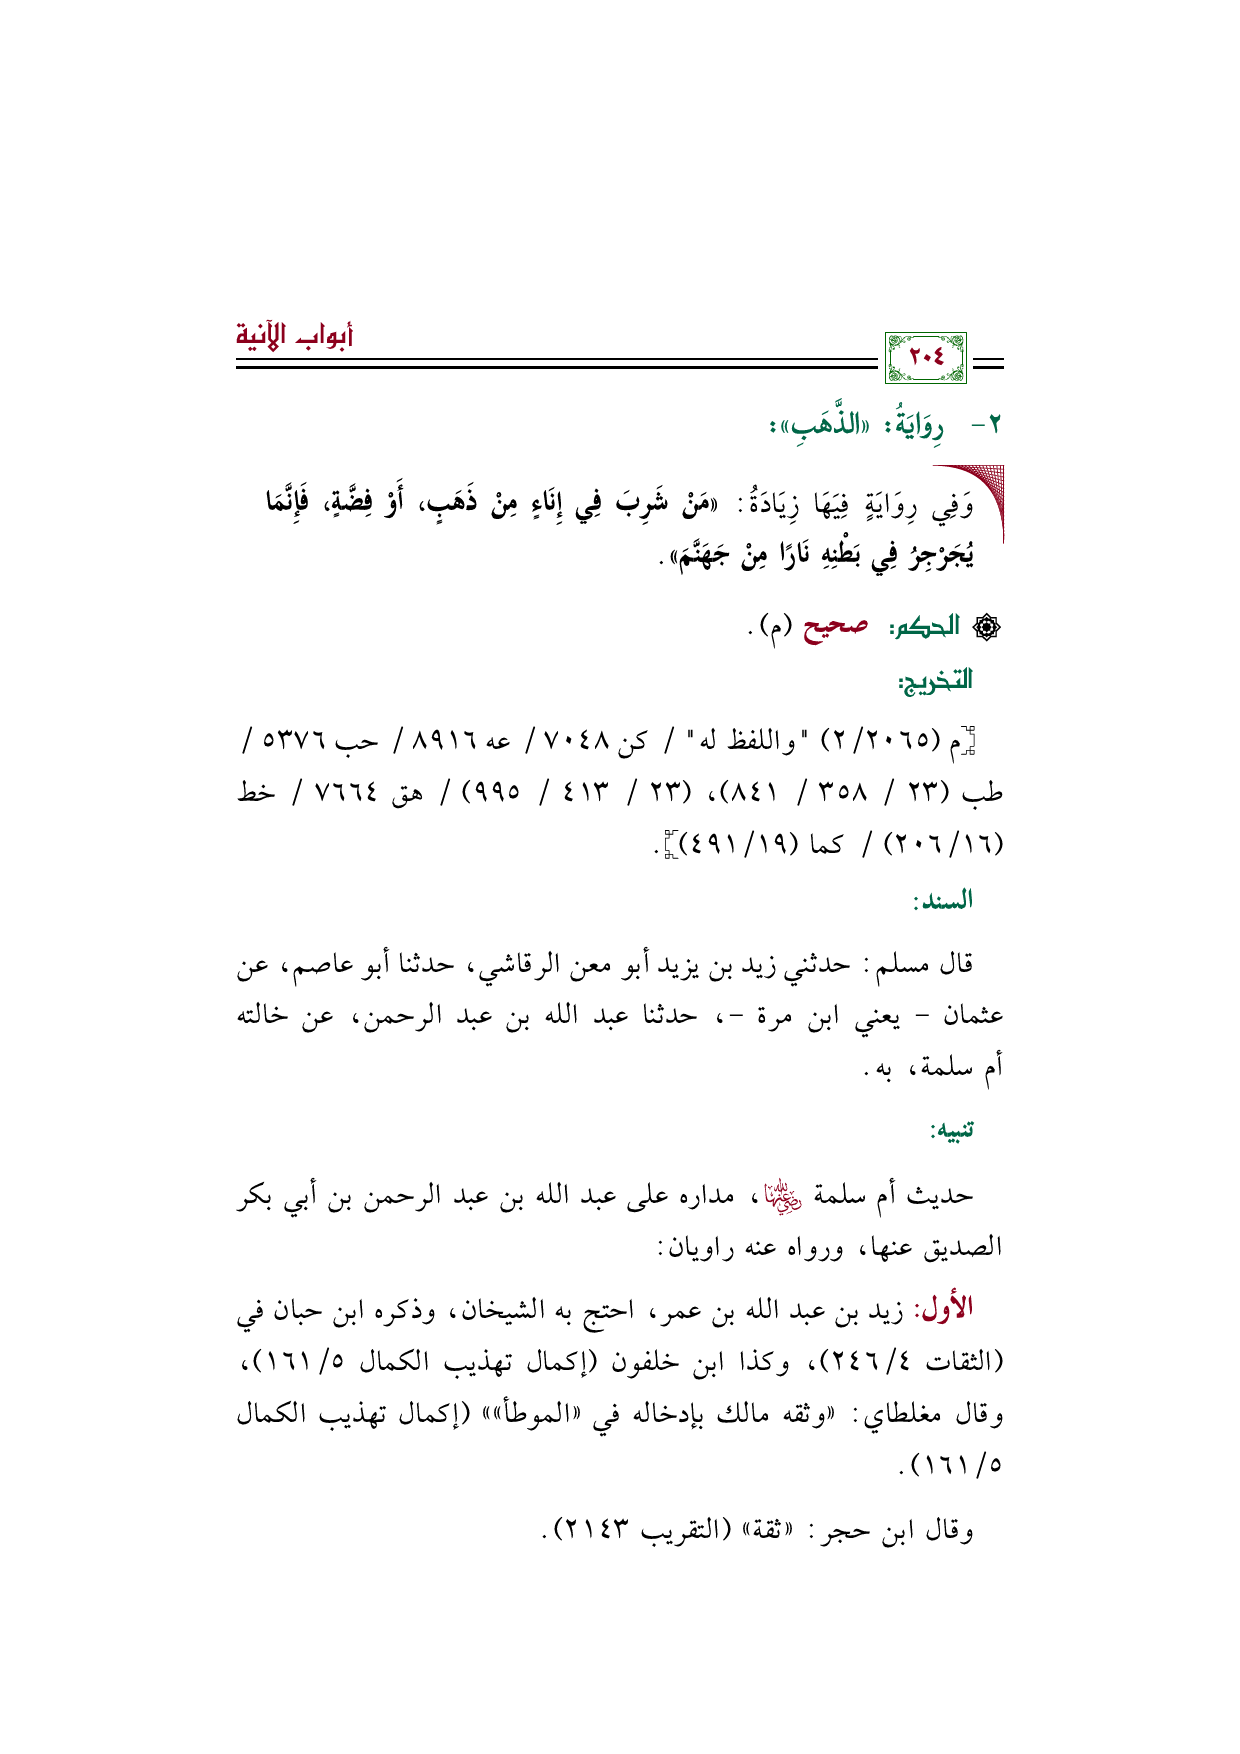 أبواب الآنية
٢٠٤
٢- رِوَايَةُ: «الذَّهَبِ»:
وَفِي رِوَايَةٍ فِيَهَا زِيَادَةُ: «مَنْ شَرِبَ فِي إِنَاءٍ مِنْ ذَهَبٍ، أَوْ فِضَّةٍ، فَإِنَّمَا
يُجَرْجِرُ فِي بَطْنِهِ نَارًا مِنْ جَهَنَّمَ».
الحكم: صحيح (م).
التخريج:
[م (٢/٢٠٦٥) "واللفظ له" / كن ٧٠٤٨ / عه ٨٩١٦ / حب ٥٣٧٦ /
طب (٢٣ / ٣٥٨ / ٨٤١)، (٢٣ / ٤١٣ / ٩٩٥) / هق ٧٦٦٤ / خط
(٢٠٦/١٦) / كما (٤٩١/١٩)].
السند:
قال مسلم: حدثني زيد بن يزيد أبو معن الرقاشي، حدثنا أبو عاصم، عن
عثمان - يعني ابن مرة -، حدثنا عبد الله بن عبد الرحمن، عن خالته
أم سلمة، به.
تنبيه:
حديث أم سلمة رضي الله عنها، مداره على عبد الله بن عبد الرحمن بن أبي بكر
الصديق عنها، ورواه عنه راويان:
الأول: زيد بن عبد الله بن عمر، احتج به الشيخان، وذكره ابن حبان في
(الثقات ٢٤٦/٤)، وكذا ابن خلفون (إكمال تهذيب الكمال ١٦١/٥)،
وقال مغلطاي: «وثقه مالك بإدخاله في «الموطأ»» (إكمال تهذيب الكمال
١٦١/٥).
وقال ابن حجر: «ثقة» (التقريب ٢١٤٣).